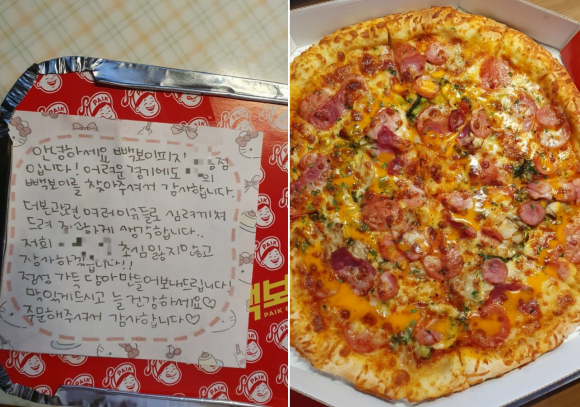 안녕하세요 빽보이피자
점
입니다! 어려운 경기에도
빽보이를 찾아주셔서 감사합니다
더본관련 여러이슈들로 심려끼쳐
드려 죄송하게 생각합니다..
저희 초심잃지않고
장사하겠습니다!!
정성 가득 담아 만들어보내드립니다!
맛있게드시고 늘 건강하세요♡
주문해주셔서 감사합니다♡
PAIK
빽보
PAIK